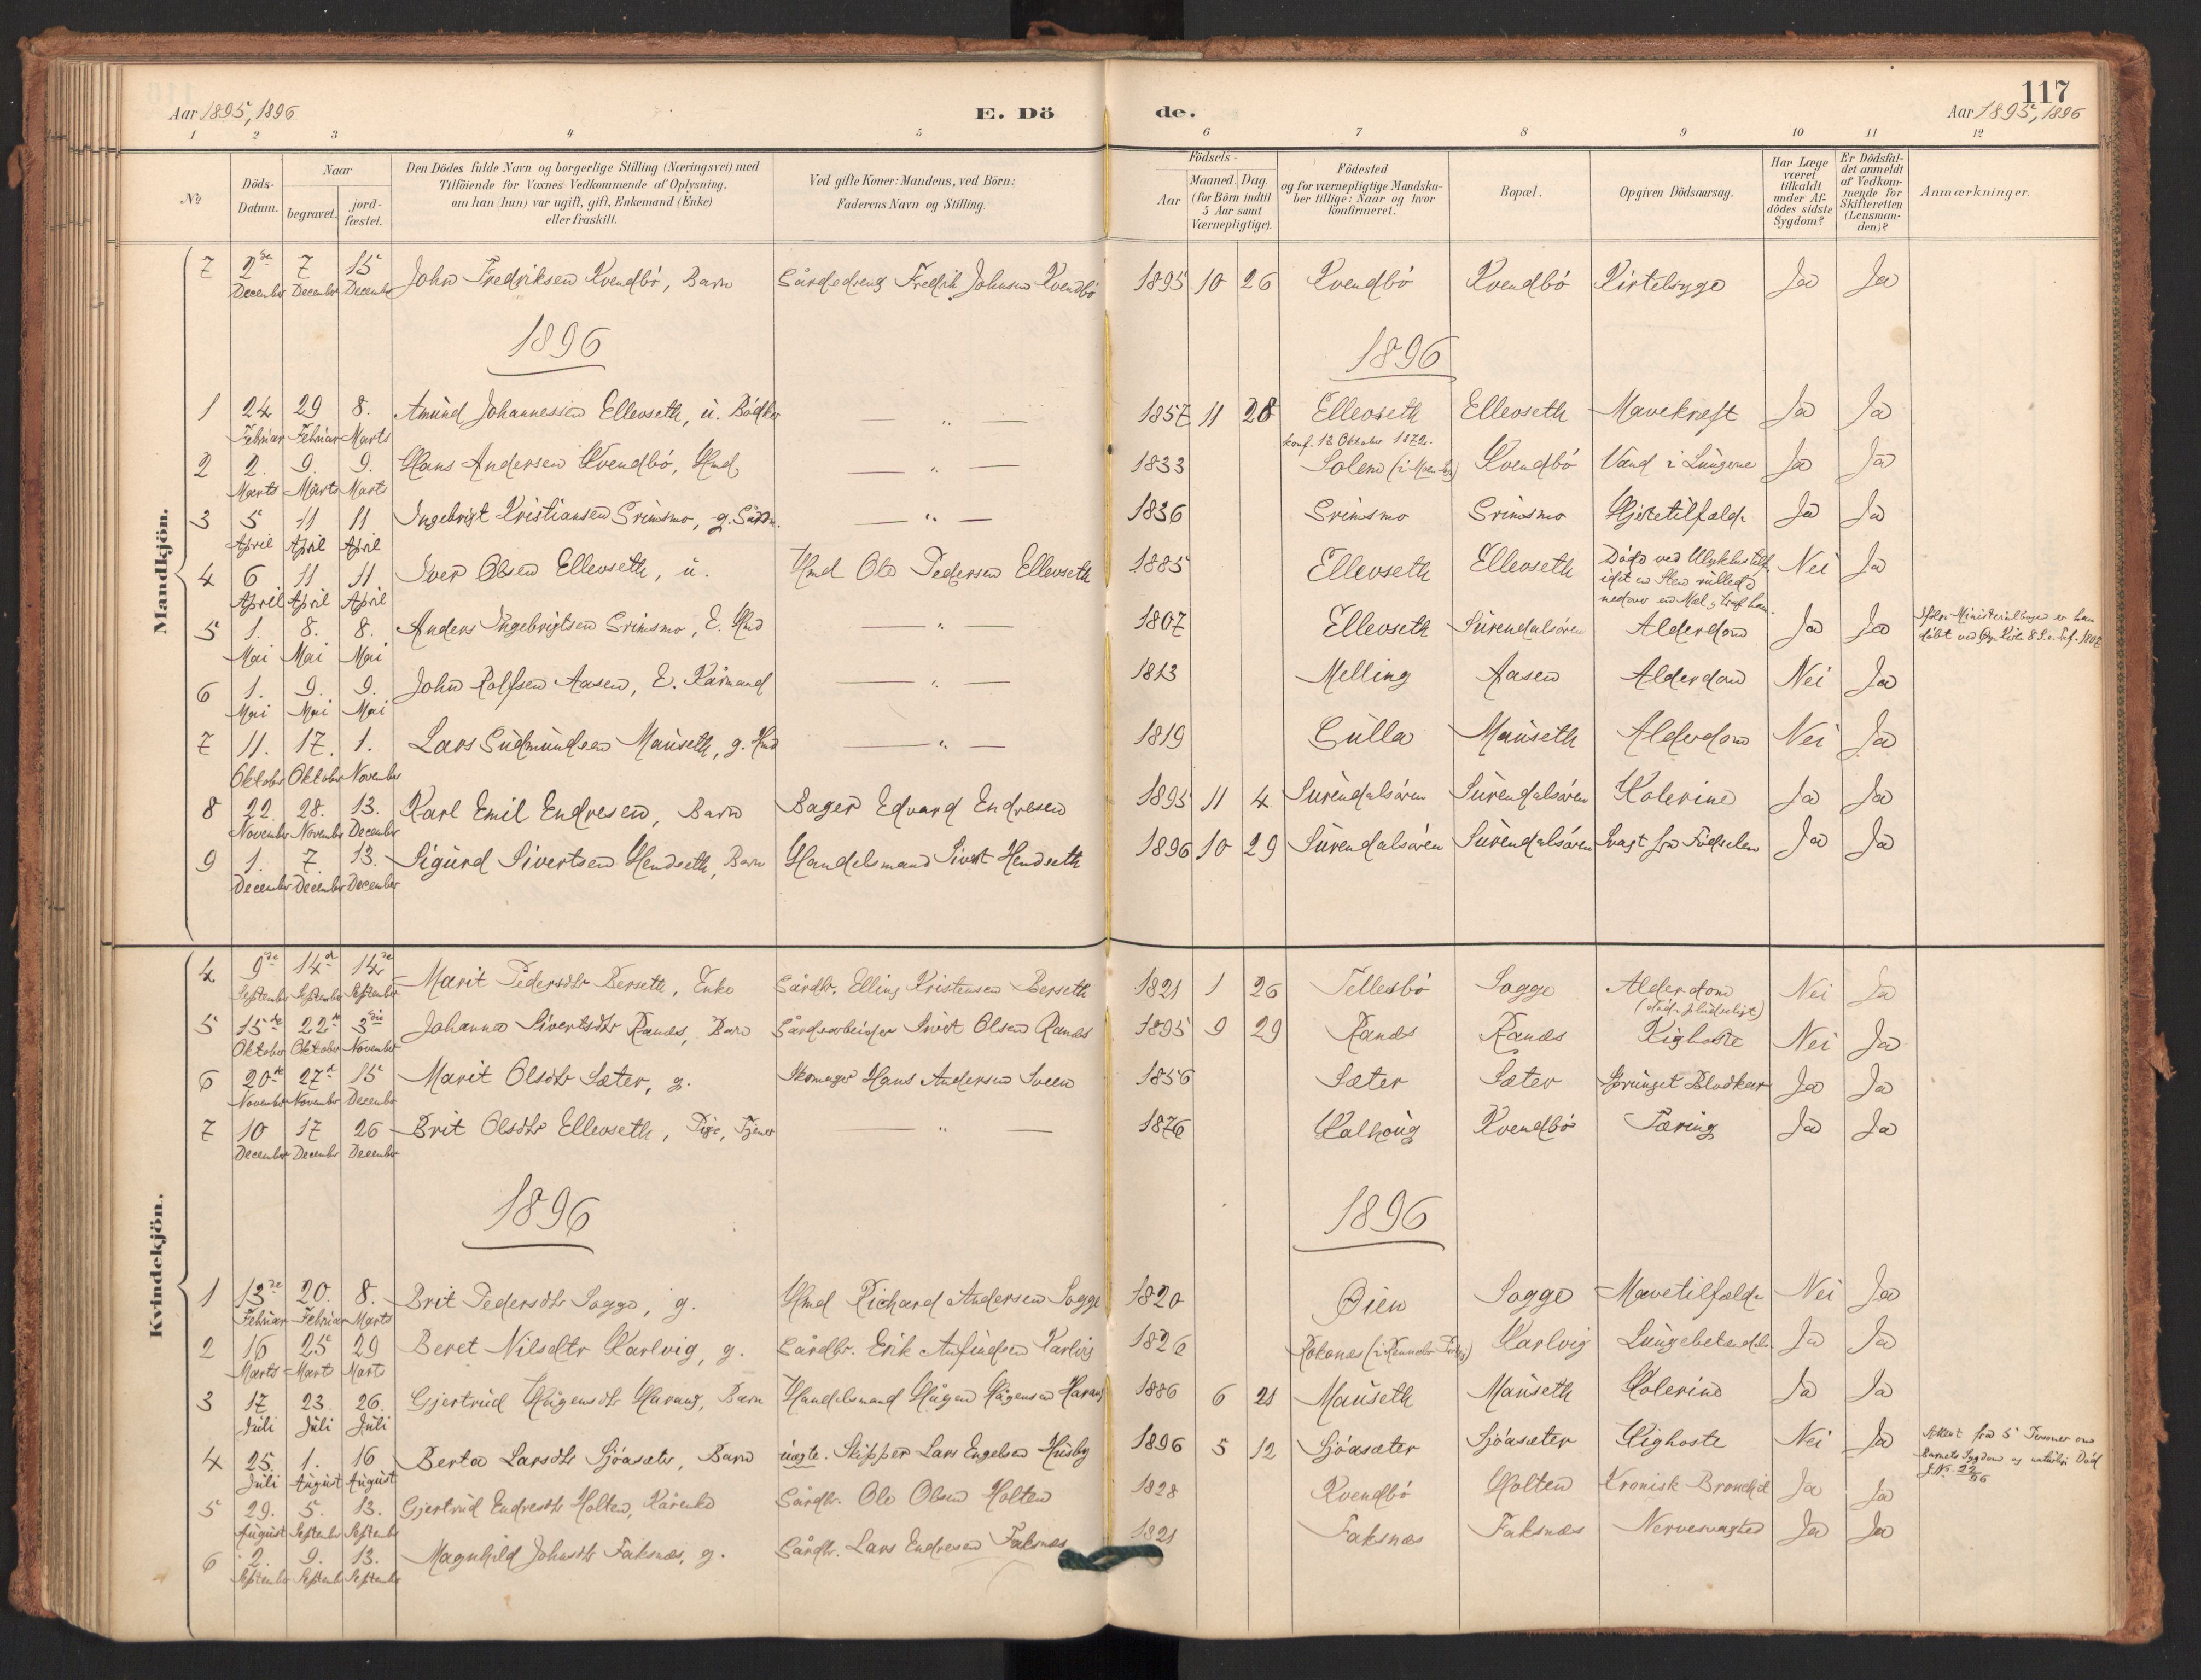 117
Aar 1895, 1896
E. Döde.
Aar 1895, 1896
1 2 3 4 5 6 7 8 9 10 11 12
No
Döds-Datum.
Naar
begravet.
jord-fæstet.
Den Dödes fulde Navn og borgerlige Stilling (Næringsvei) med
Tilföiende for Voxnes Vedkommende af Oplysning,
om han (hun) var ugift, gift, Enkemand (Enke)
eller fraskilt.
Ved gifte Koner: Mandens, ved Börn:
Faderens Navn og Stilling.
Födsels-
Aar
Maaned. Dag.
(for Börn indtil
5 Aar samt
Værnepligtige).
Födested
og for værnepligtige Mandska-
ber tillige: Naar og hvor
konfirmeret.
Bopæl.
Opgiven Dödsaarsag.
Har Læge
været
tilkaldt
under Af-
dödes sidste
Sygdom?
Er Dödsfal-
det anmeldt
af Vedkom-
mende for
Skifteretten
(Lensman-
den)?
Anmærkninger.
Mandkjön.
7 2de December 7 December 15 December John Fredriksen Kvendbó, Barn Gårdedreng Fredrik Johnsen Kvendbó 1895 10 26 Kvendbó Kvendbó Kirtelsyge Ja Ja
1896 1896
1 24 Februar 29 Februar 8. Marts Amund Johannessen Ellevseth, u. Bódker — " — 1857 11 28 Ellevseth Ellevseth Mavekræft Ja Ja
konf. 13 Oktober 1872.
2 2. Marts 9. Marts 9. Marts Hans Andersen Kvendbó, Hmd — " — 1833 Solem Kvendbó Vand i Lungerne Ja Ja
3 5 April 11 April 11 April Ingebrigt Kristiansen Grimsmo, g. Gårdm. — " — 1836 Grimsmo Grimsmo Hjertetilfælde Ja Ja
4 6 April 11 April 11 April Iver Olsen Ellevseth, u. Hmd Ole Pedersen Ellevseth 1885 Ellevseth Ellevseth Nei Ja
Dóde ved
idet en Sten rullede
nedover
5 1. Mai 8. Mai 8. Mai Anders Ingebrigtsen Grimsmo, E. Hmd — " — 1807 Ellevseth Surendalsóren Alderdom Ja Ja
Ministerialbogen er han
dóbt ved
6 1. Mai 9. Mai 9. Mai John Rolfsen Aasen, E. Kårmand — " — 1813 Melling Aasen Alderdom Nei Ja
7 11. Oktober 17. Oktober 1. November Lars Gudmundsen Mauseth, g. Hmd — " — 1819 Gulla Mauseth Alderdom Nei Ja
8 22. November 28. November 13. December Karl Emil Endresen, Barn Bager Edvard Endresen 1895 11 4 Surendalsóren Surendalsóren Kolerine Ja Ja
9 1. December 7 December 13. December Sigurd Sivertsen Hendseth, Barn Handelsmand Sivert Hendseth 1896 10 29 Surendalsóren Surendalsóren Svag fra Fódselen Ja Ja
Kvindekjön.
4 9de September 14de September 14de September Marit Pedersdtr Berseth, Enke Gårdbr. Elling Kristensen Berseth 1821 1 26 Tellesbó Sogge Alderdom Nei Ja
(dóde pludseligt)
5 15de Oktober 22de Oktober 3die November Johanna Sivertsdtr Ranæs, Barn Gårdearbeider Sivert Olsen Ranæs 1895 9 29 Ranæs Ranæs Kighoste Nei Ja
6 20de November 27de November 15 December Marit Olsdtr Sæter, g. Skomager Hans Andersen Sveen 1856 Sæter Sæter Sprunget Blodkar Ja Ja
7 10 December 17 December 26 December Brit Olsdtr Ellevseth, Pige, Tjener — " — 1876 Halhoug Kvendbó Tæring Ja Ja
1896 1896
1 13de Februar 20. Februar 8. Marts Brit Pedersdtr Sogge, g. Hmd Richard Andersen Sogge 1820 Øien Sogge Mavetilfælde Nei Ja
2 16 Marts 25 Marts 29 Marts Beret Nilsdtr Karlvig, g. Gårdbr. Erik Anfindsen Karlvig 1826 Rokonæs Karlvig Lungebetændelse Ja Ja
3 17 Juli 23. Juli 26. Juli Gjertrud Hågensdtr Harang, Barn Handelsmand Hågen Hågensen Harang 1886 6 21 Mauseth Mauseth Kolerine Ja Ja
4 25. Juli 1. August 16 August Berta Larsdtr Sjóasæter, Barn uægte. Skipper Lars Engelsen Husby 1896 5 12 Sjóasæter Sjóasæter Kighoste Nei Ja
Attest fra 5 Personer om
Barnets Sygdom og naturlige Dód
J.No. 22/96
5 29. August 5. September 13. September Gjertrud Endresdtr Holten, Kårenke Gårdbr. Ole Olsen Holten 1828 Kvendbó Holten Kronisk Bronchit Ja Ja
6 2. September 9. September 13. September Magnhild Johnsdtr Faksnæs, g. Gårdbr. Lars Endresen Faksnæs 1821 Faksnæs Faksnæs Nervesvaghed Ja Ja